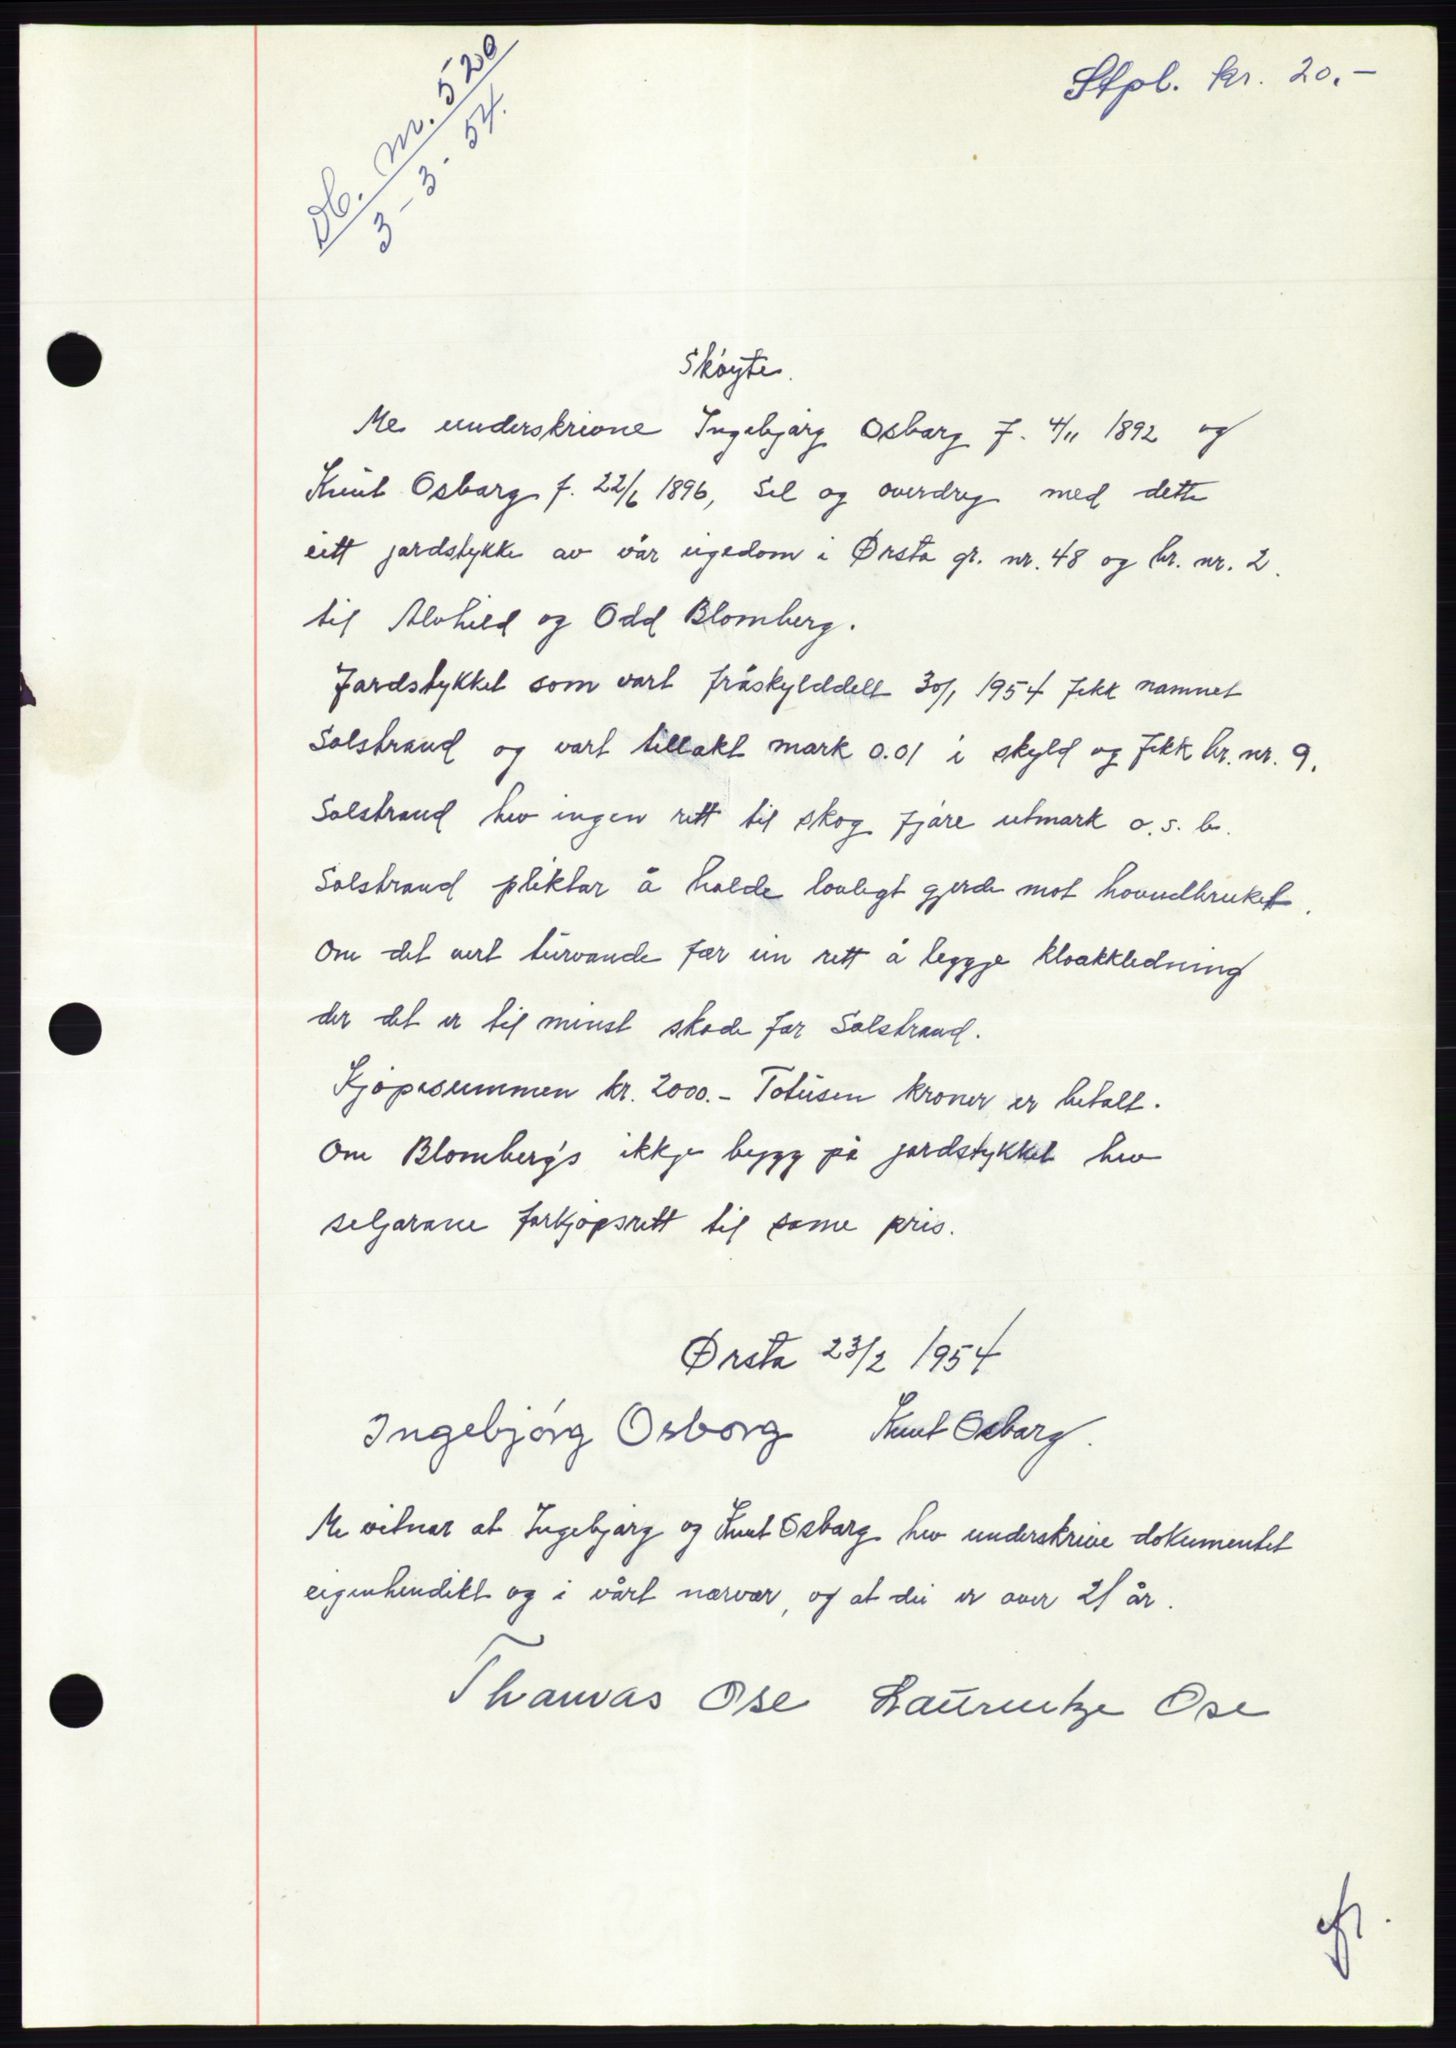 Stpl. kr. 20.-
Db. nr. 520
3-3-54.
Skøyte.
Me underskrivne Ingebjørg Osborg f. 4/11 1892 og
Knut Osborg f. 22/6 1896, sel og overdreg med dette
eitt jordstykke av vår eigedom i Ørsta gr. nr. 48 og br. nr. 2.
til Alvhild og Odd Blomberg.
Jordstykket som vart fråskylddelt 30/1 1954 fekk namnet
Solstrand og vart tillakt mark 0.01 i skyld og fekk br. nr. 9.
Solstrand hev ingen rett til skog fjøre utmark o. s. b.
Solstrand pliktar å halde lovlegt gjerde mot hovudbruket.
Om det vert turvande fær ein rett å leggje kloakkledning
der det er til minst skade for Solstrand.
Kjøpesummen kr. 2000.- Totusen kroner er betalt.
Om Blomberg's ikkje bygg på jordstykket hev
seljarane forkjøpsrett til same pris.
Ørsta 23/2 1954
Ingebjørg Osborg Knut Osborg.
Me vitnar at Ingebjørg og Knut Osborg hev underskrive dokumentet
eigenhendikt og i vårt nærvær, og at dei er over 21 år.
Thomas Ose Laurentze Ose